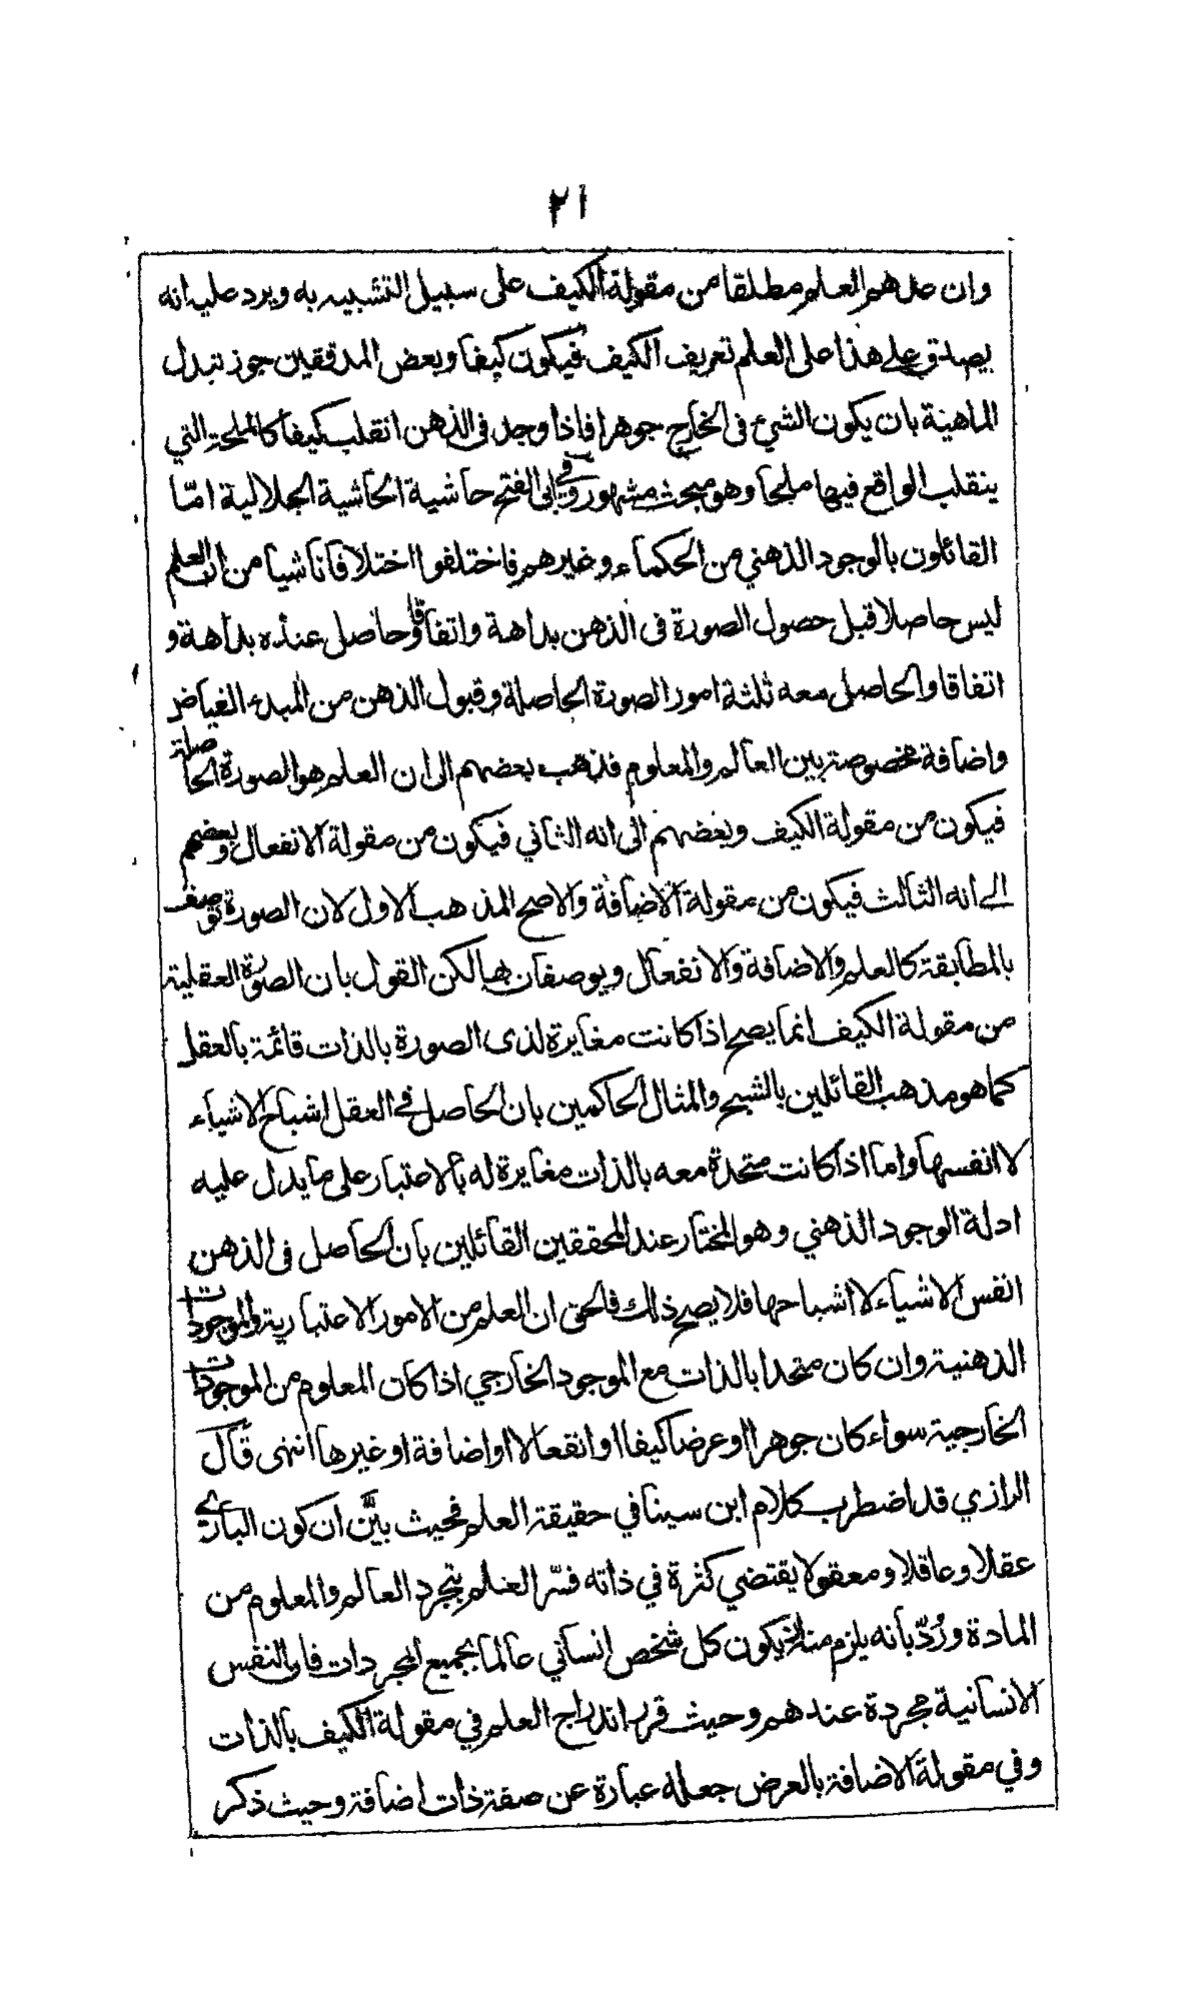 ٢١
وان عدهم العلم مطلقا من مقولة الكيف على سبيل التشبيه به ويرد عليه انه
يصدق على هذا على العلم تعريف الكيف فيكون كيفا وبعض المدققين جوز تبدل
الماهية بان يكون الشئ فى الخارج جوهرا فاذا وجد فى الذهن انقلب كيفا كالملحة التي
ينقلب الواقع فيها ملحا وهو مبحث مشهور وفي ابى الفتح حاشية الحاشية الجلالية امّا
القائلون بالوجود الذهني من الحكماء وغيرهم فاختلفوا اختلافا ناشيا من ان العلم
ليس حاصلا قبل حصول الصورة فى الذهن بداهة واتفاقا وحاصل عنده بداهة و
اتفاقا والحاصل معه ثلثة امور الصورة الحاصلة وقبول الذهن من المبدء الفياض
واضافة مخصوصة بين العالم والمعلوم فذهب بعضهم الى ان العلم هو الصورة الحاصلة
فيكون من مقولة الكيف وبعضهم الى انه الثاني فيكون من مقولة الانفعال وبعضهم
الى انه الثالث فيكون من مقولة الاضافة والاصح المذهب الاول لان الصورة توصف
بالمطابقة كالعلم والاضافة والانفعال ويوصفان بها لكن القول بان الصورة العقلية
من مقولة الكيف انما يصح اذا كانت مغايرة لذى الصورة بالذات قائمة بالعقل
كما هو مذهب القائلين بالشبح والمثال الحاكمين بان الحاصل في العقل اشباح الاشياء
لا انفسها واما اذا كانت متحدة معه بالذات مغايرة له بالاعتبار على ما يدل عليه
ادلة الوجود الذهني وهو المختار عند المحققين القائلين بان الحاصل فى الذهن
انفس الاشياء لا اشباحها فلا يصح ذلك فالحق ان العلم من الامور الاعتبارية والموجودات
الذهنية وان كان متحدا بالذات مع الموجود الخارجي اذا كان المعلوم من الموجودات
الخارجية سواء كان جوهرا او عرضا كيفا او انفعالا او اضافة او غيرها انتهى قال
الرازي قد اضطرب كلام ابن سينا في حقيقة العلم فحيث بيّن ان كون الباري
عقلا وعاقلا ومعقولا يقتضي كثرة في ذاته فسّر العلم بتجرد العالم والمعلوم من
المادة ورُدّ بانه يلزم منه ان يكون كل شخص انساني عالما بجميع المجردات فان النفس
الانسانية مجردة عندهم وحيث قرر اندراج العلم في مقولة الكيف بالذات
وفي مقولة الاضافة بالعرض جعله عبارة عن صفة ذات اضافة وحيث ذكر